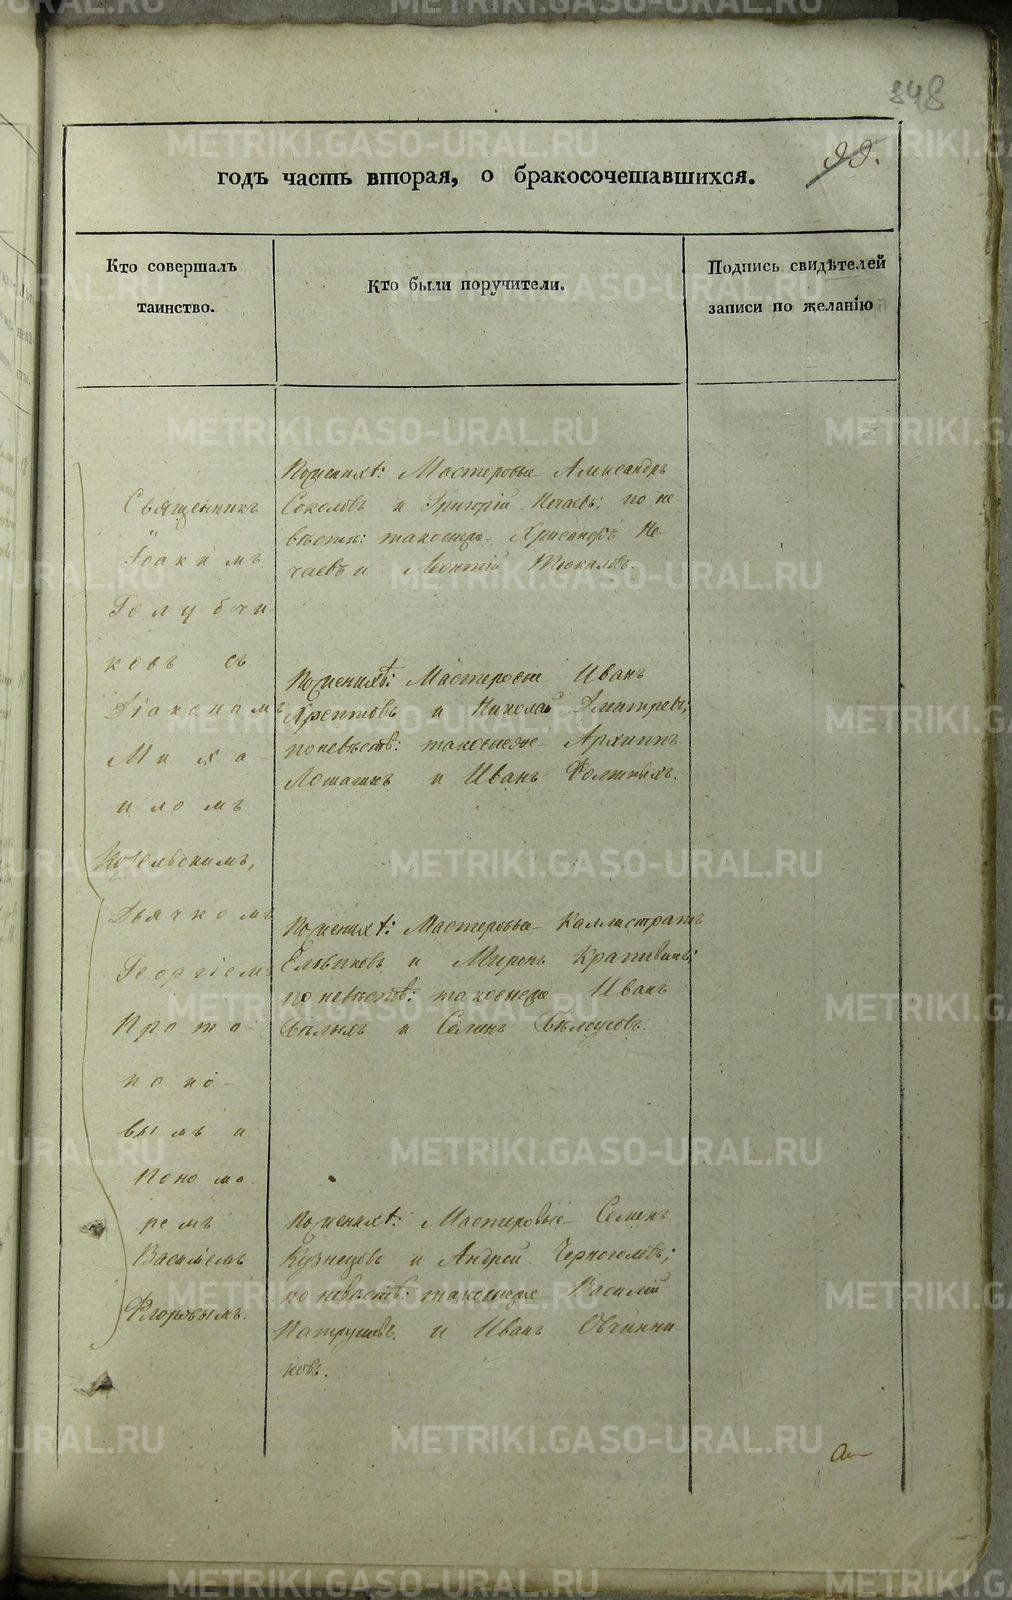 848
99.
годъ часть вторая, о бракосочетавшихся.
Кто совершалъ
таинство.
Кто были поручители.
Подпись свидѣтелей
записи по желанію
Священникъ
Іоакимъ
Голубчи
ковъ съ
Діакономъ
Миха-
иломъ
Козельскимъ,
Дьячкомъ
Георгіемъ
Прото-
попо-
вымъ и
Понома
ремъ
Василіемъ
Флоровымъ.
По женихѣ: Мастеровые Александръ
Соколовъ и Григорій Нечаевъ; по не
вѣстѣ: таковыеже Хрисанфъ Не-
чаевъ и Леонтій Тюкаловъ.
По женихѣ: Мастеровые Иванъ
и Николай Дмитревъ;
по невѣстѣ: таковыеже Архиппъ
Лошагинъ и Иванъ
По женихѣ: Мастеровые Каллистратъ
Ельвиковъ и Миронъ Крапивинъ;
по невѣстѣ: таковыеже Иванъ
Бѣлыхъ и Семенъ Бѣлоусовъ.
По женихѣ: Мастеровые Семенъ
Кузнецовъ и Андрей Черноголовъ;
по невѣстѣ: таковыеже Василій
Патрушевъ и Иванъ Овчинни-
ковъ.
METRIKI.GASO-URAL.RU